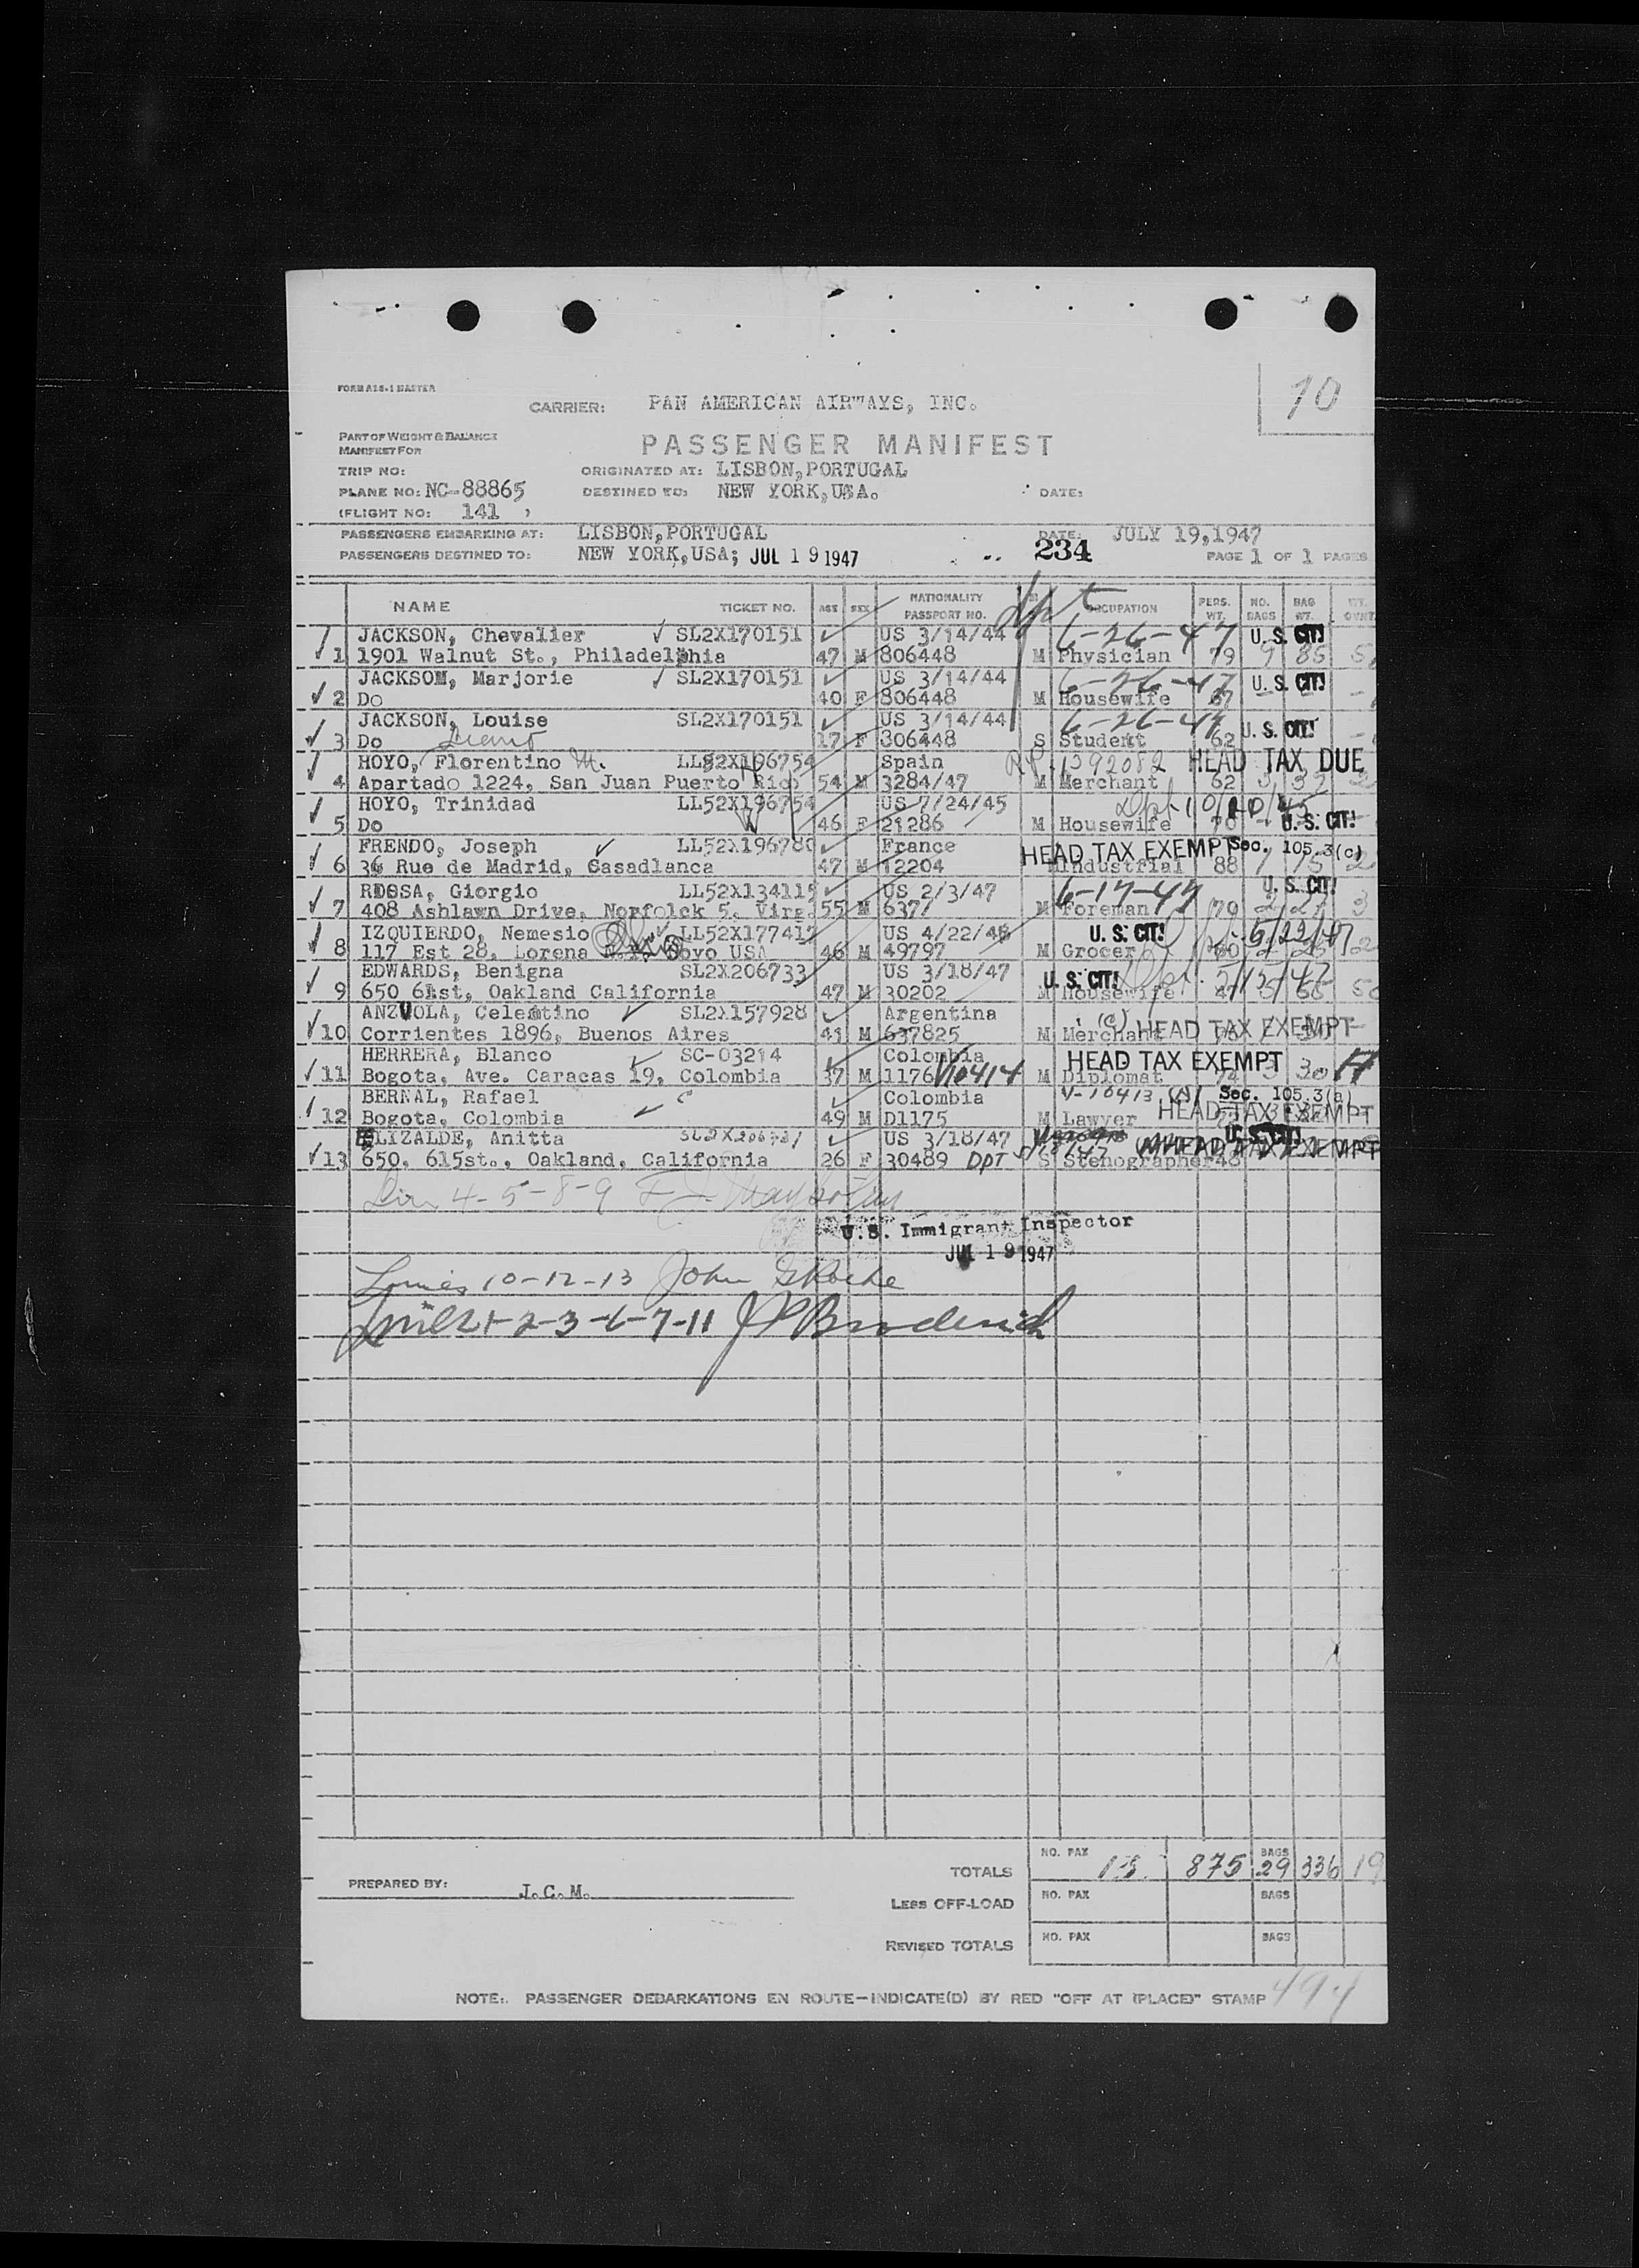 FORM A18-1 MASTER
10
CARRIER: PAN AMERICAN AIRWAYS, INC.
PART OF WEIGHT & BALANCE
MANIFEST FOR
PASSENGER MANIFEST
TRIP NO: ORIGINATED AT: LISBON, PORTUGAL
PLANE NO: NC-88865 DESTINED TO: NEW YORK, USA. DATE:
(FLIGHT NO: 141 )
PASSENGERS EMBARKING AT: LISBON, PORTUGAL DATE: JULY 19, 1947
PASSENGERS DESTINED TO: NEW YORK, USA; JUL 19 1947 234 PAGE 1 OF 1 PAGES
NAME TICKET NO. AGE SEX NATIONALITY PASSPORT NO. OCCUPATION PERS. WT. NO. BAGS BAG WT.
JACKSON, Chevalier SL2X170151 US 3/14/44 6-26-47 U. S. CIT!
1 1901 Walnut St., Philadelphia 47 M 806448 M Physician 79 9 85
JACKSON, Marjorie SL2X170151 US 3/14/44 6-26-47 U. S. CIT!
2 Do 40 F 806448 M Housewife 67
JACKSON, Louise SL2X170151 US 3/14/44 6-26-47 U. S. CIT!
3 Do 17 F 806448 S Student 62
HOYO, Florentino M. LL52X196754 Spain 1392082 HEAD TAX DUE
4 Apartado 1224, San Juan Puerto Rico 54 M 3284/47 M Merchant 62
HOYO, Trinidad LL52X196754 US 7/24/45
5 Do 46 F 21286 M Housewife 70 U. S. CIT!
FRENDO, Joseph LL52X196780 France HEAD TAX EXEMPT Sec. 105.3(c)
6 36 Rue de Madrid, Casadlanca 47 M 12204 M Industrial 88 1 15
ROSSA, Giorgio LL52X134115 US 2/3/47 6-17-47 U. S. CIT!
7 408 Ashlawn Drive, Norfolck 5, Virg. 55 M 6377 M Foreman 79 2 27 3
IZQUIERDO, Nemesio LL52X177417 US 4/22/46 U. S. CIT! 5/22/47
8 117 Est 28, Lorena USA 46 M 49797 M Grocer
EDWARDS, Benigna SL2X206733 US 3/18/47 U. S. CIT!
9 650 61st, Oakland California 47 M 30202 M Housewife
ANZUOLA, Celestino SL2X157928 Argentina (c) HEAD TAX EXEMPT
10 Corrientes 1896, Buenos Aires 41 M 637825 M Merchant
HERRERA, Blanco SC-03214 Colombia HEAD TAX EXEMPT
11 Bogota, Ave. Caracas 19, Colombia 37 M 1176 V10414 M Diplomat 74 3 30
BERNAL, Rafael Colombia V-10413 Sec. 105.3(a)
12 Bogota, Colombia 49 M D1175 M Lawyer HEAD TAX EXEMPT
ELIZALDE, Anitta US 3/18/47 U. S. CIT!
13 650, 615st., Oakland, California 26 F 30489 DPT S Stenographer 48 HEAD TAX EXEMPT
4-5-8-9
U.S. Immigrant Inspector
JUL 19 1947
Lines 10-12-13 John
Lines 1-2-3-6-7-11 J P Broderick
TOTALS NO. PAX 13 875 BAGS 29 336 19
PREPARED BY: J.C.M.
LESS OFF-LOAD NO. PAX BAGS
REVISED TOTALS NO. PAX BAGS
NOTE: PASSENGER DEBARKATIONS EN ROUTE—INDICATE(D) BY RED "OFF AT (PLACE)" STAMP